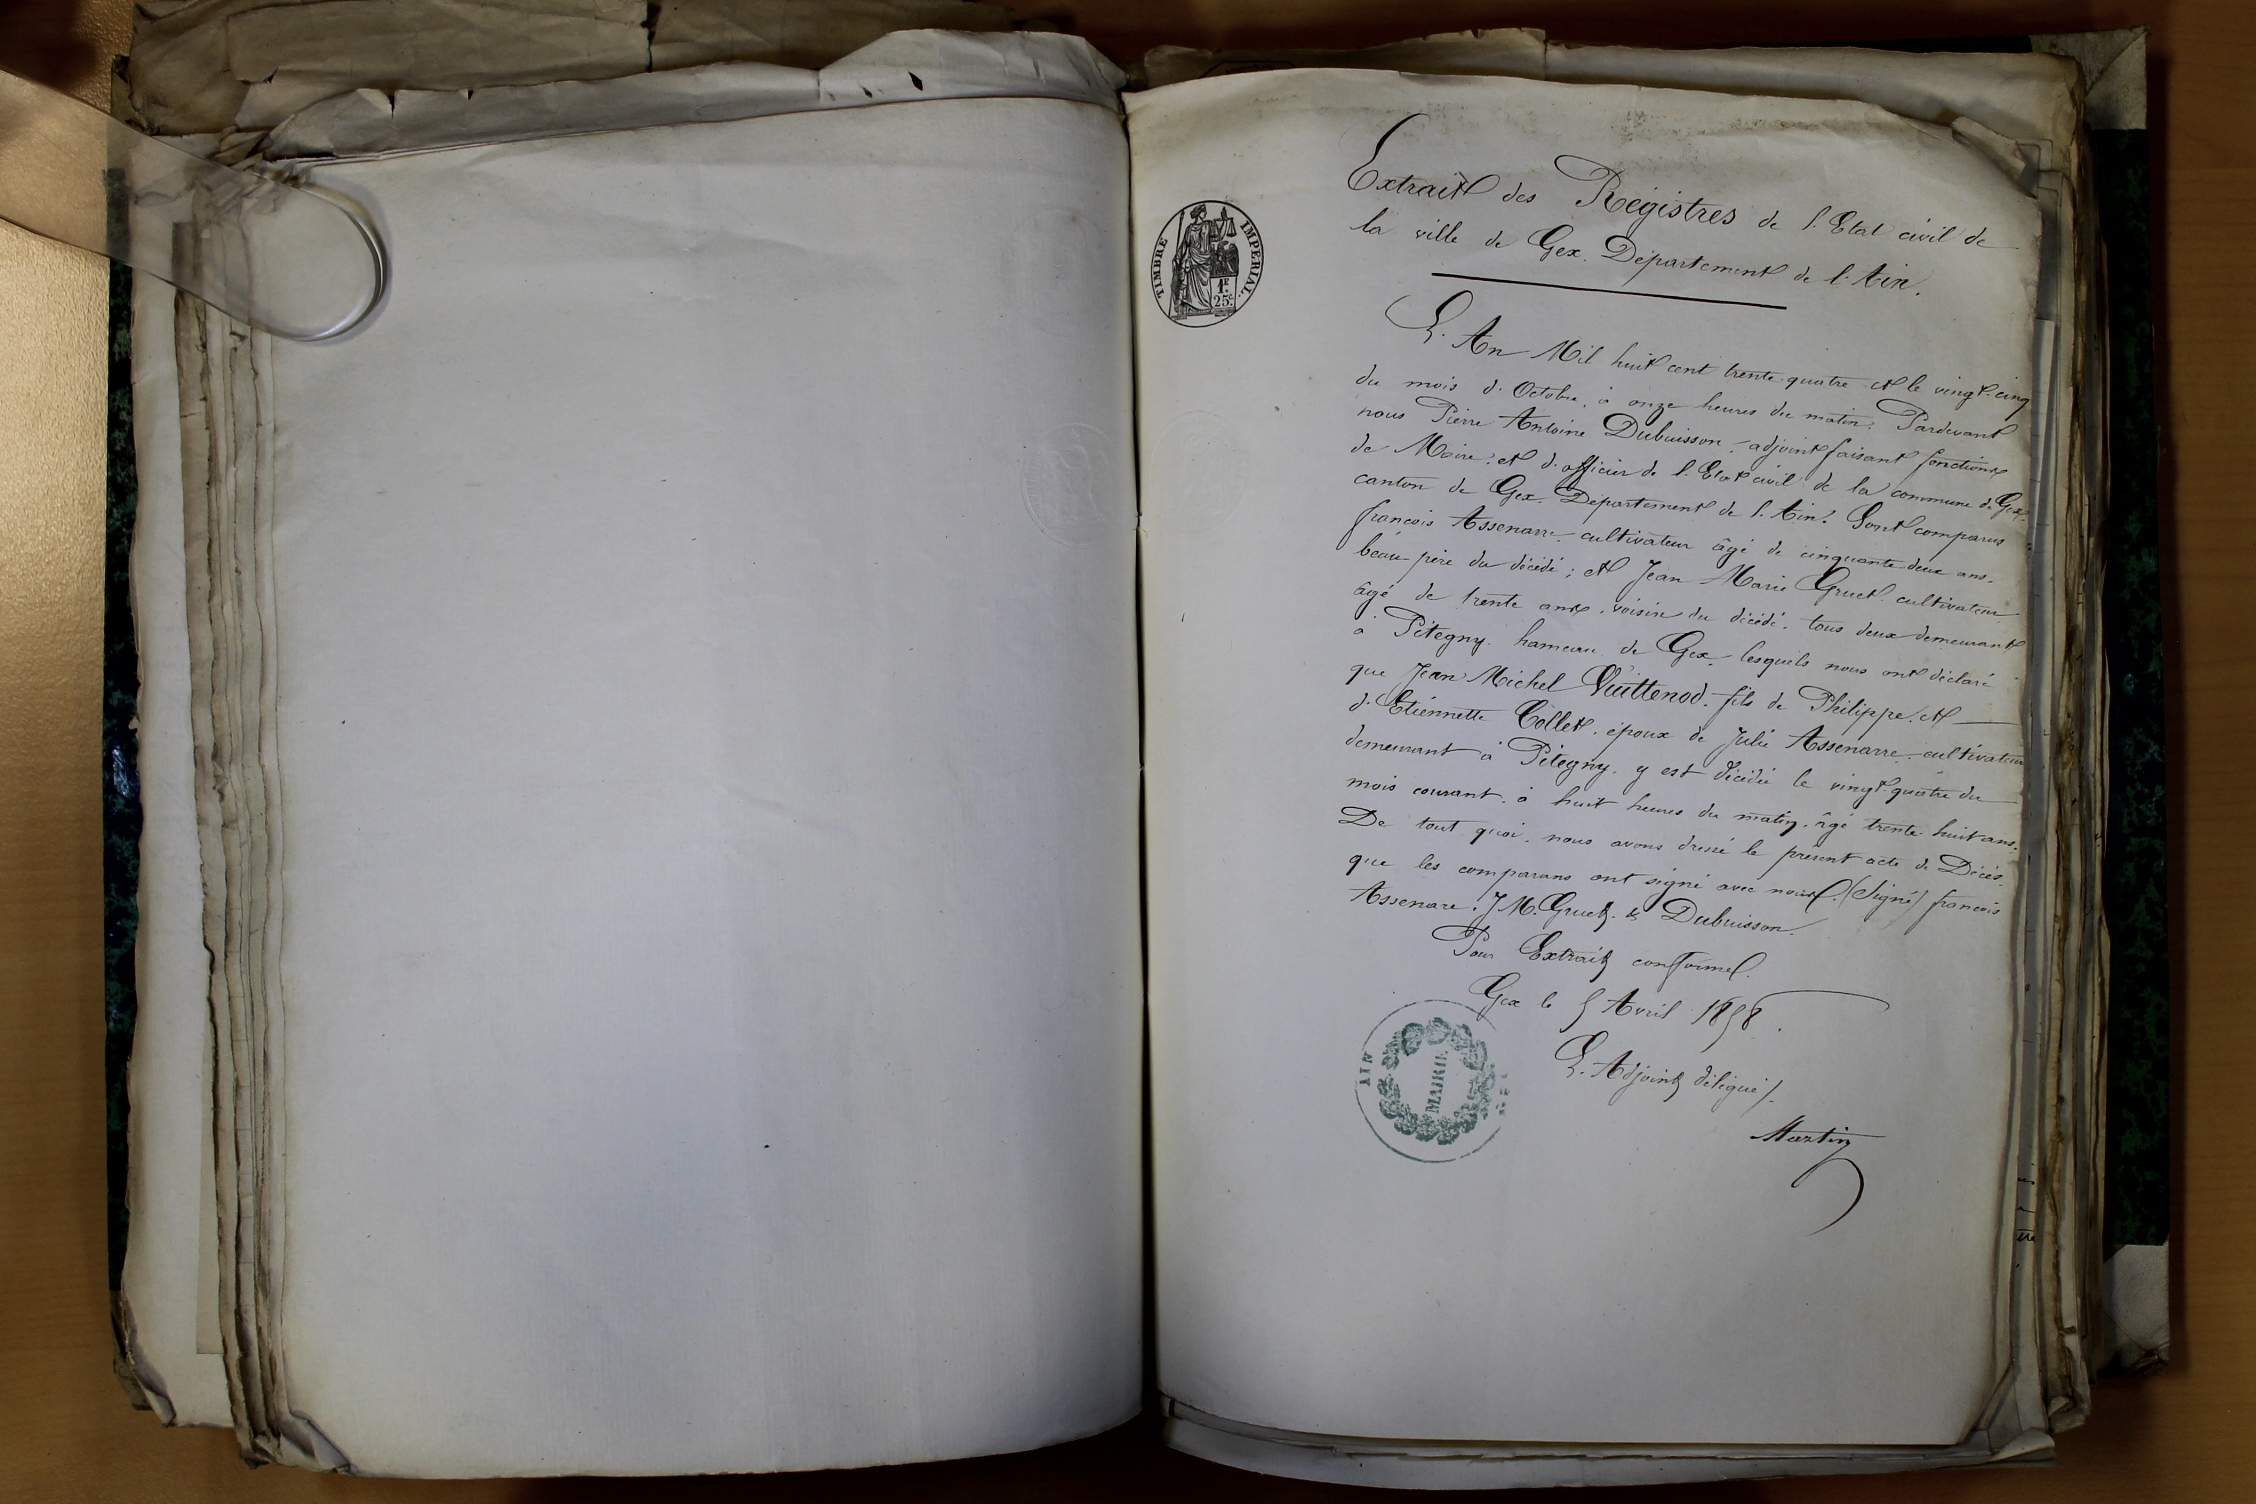 Extrait des Régistres de l'Etat civil de
la ville de Gex. Département de l'Ain.
TIMBRE IMPERIAL.
1F
25c
L'An Mil huit cent trente quatre et le vingt-cinq
du mois d'Octobre, à onze heures du matin. Pardevant
nous Pierre Antoine Dubuisson, adjoint faisant fonctions
de Maire, et d'officier de l'Etat civil de la commune de Gex.
canton de Gex. Département de l'Ain. Sont comparus
françois Assenarre, cultivateur âgé de cinquante deux ans.
beau-père du décédé; et Jean Marie Gruet. cultivateur
âgé de trente ans, voisin du décédé. tous deux demeurant
à Pitegny. hameau de Gex, lesquels nous ont déclaré
que Jean Michel Vuittenod. fils de Philippe. et
d'Etiennette Collet, époux de Julie Assenarre, cultivateur
demeurant à Pitegny. y est décédé le vingt-quatre du
mois courant. à huit heures du matin. âgé trente huit ans.
De tout quoi, nous avons dressé le présent acte de Décès.
que les comparans ont signé avec nous. (Signé) françois
Assenare. J M. Gruet. & Dubuisson.
Pour Extrait conforme.
Gex le 5 Avril 1858.
L'Adjoint délégué /.
AIN
MAIRIE
Martin